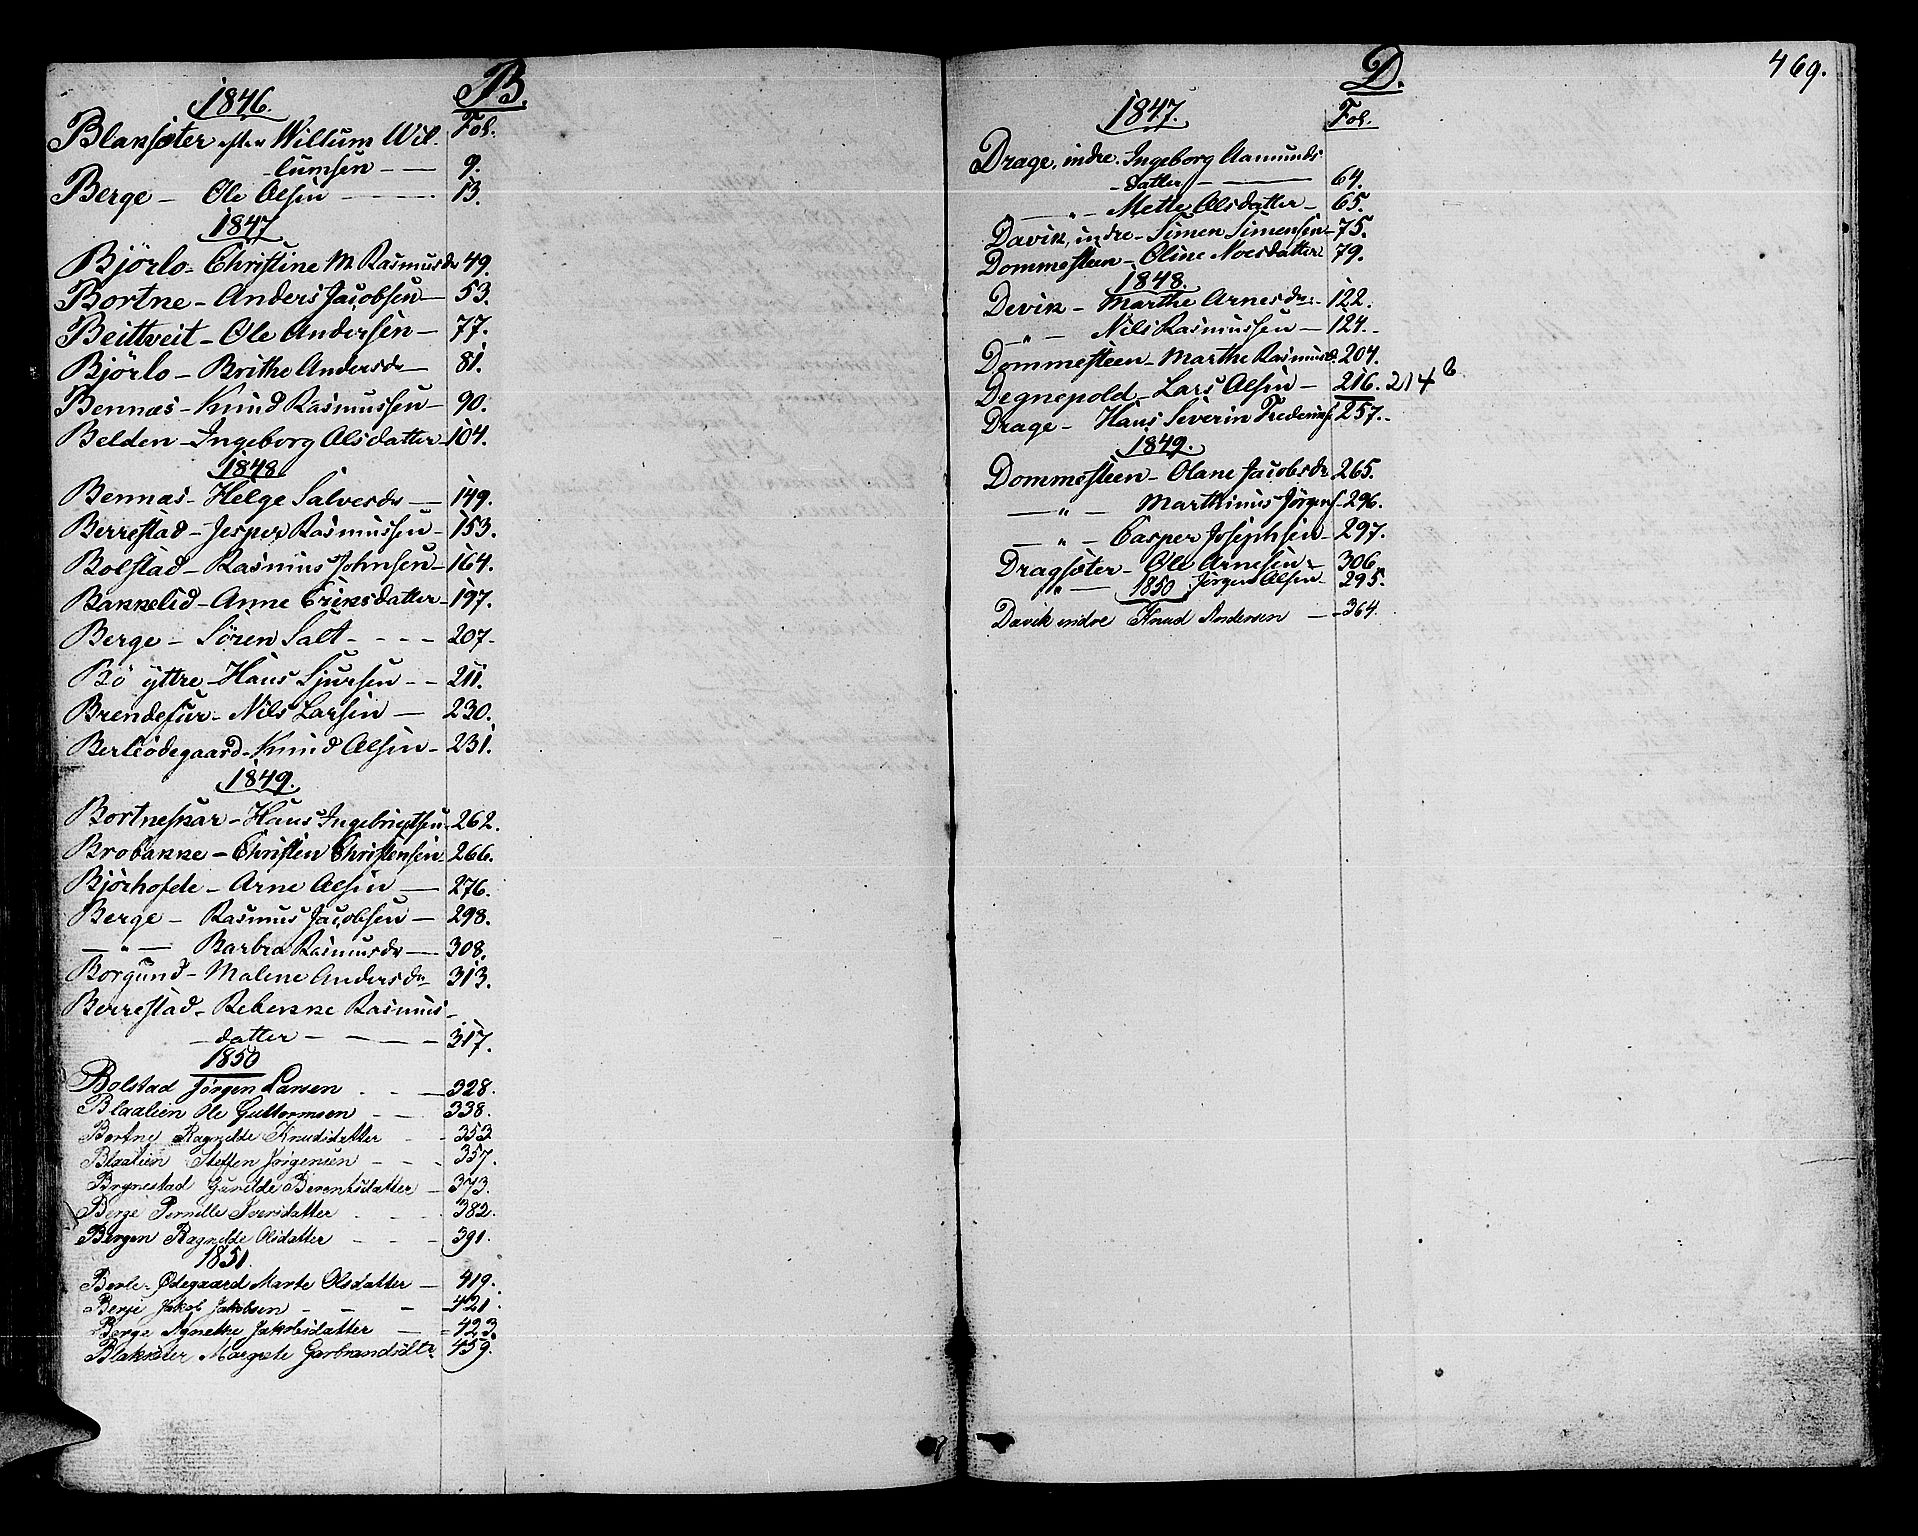 B.
1846.
Fol.
Blaksæter efter Willum Wil-
-lumsen - — 9.
Berge — Ole Olsen - - - - - 13.
1847
Bjørlo - Christine M Rasmusdr 49.
Bortne - Anders Jacobsen — 53.
Beitveit - Ole Andersen — 77.
Bjørlo - Brithe Andersdr — 81.
Bennæs - Knud Rasmussen - 90.
Belden - Ingeborg Olsdatter - 104.
1848
Bennæs - Helge Salvesdr — 149.
Berrestad - Jesper Rasmussen - 153.
Bolstad - Rasmus Johnsen - 164.
Bakkelid - Anne Eriksdatter - 197.
Berge - Sören Salt - - - - 207-
Bö yttre - Hans Sjursen - - 211.
Brendefur - Nils Larsen — 230.
Berleödegaard - Knud Olsen - 231.
1849.
Bortneskar - Hans Ingebrigtsen - 262.
Brobakke - Christen Christensen - 266.
Bjørhofde - Arne Olsen — 276.
Berge - Rasmus Jacobsen — 298.
— " — Barbra Rasmusdr — 308.
Borgund - Malene Andersdr 313.
Berrestad - Rebekke Rasmus-
- datter - — — — - 317.
1850
Bolstad Jørgen Larsen - - — 328.
Blaalien Ole Guttormsen - - 338.
Bortne Ragnilde Knudsdatter - - 353
Blaalien Steffen Jørgensen - - - 357.
Brynestad Gurilde Berentsdatter - 373.
Berge Pernille Iversdatter - - - 382.
Bergen Ragnilde Olsdatter - - - 391.
1851.
Berle-Ødegaard Marte Olsdatter — 419.
Berge Jakob Jakobsen - - - 421.
Berge Agnethe Jakobsdatter — - 423.
Blaksæter Margrete Garbrandsdtr. 459.
D.
469.
1847.
Fol.
Drage, indre. Ingeborg Aamunds
- datter - — 64.
— " - Mette Olsdatter - 65.
Davik, indre - Simen Simensen - 75.
Dommesteen - Oline Moesdatter 79.
1848.
Devik - Marthe Arnesdr - 122.
— " — Nils Rasmussen — 124.-
Dommesteen - Marthe Rasmusd. 204.
Degnepold - Lars Olsen — 216. 214 b
Drage - Hans Severin Frederiks 257.-
1849.
Dommesteen - Olane Jacobsdr 265.
— " — Marthinus Jörgens - 296.
— " - Casper Josephsen - 297.
Dragsæter - Ole Arnesen - 306
" — Jörgen Olsen - 295.
1850
Davik indre Knud Andersen — - 364.